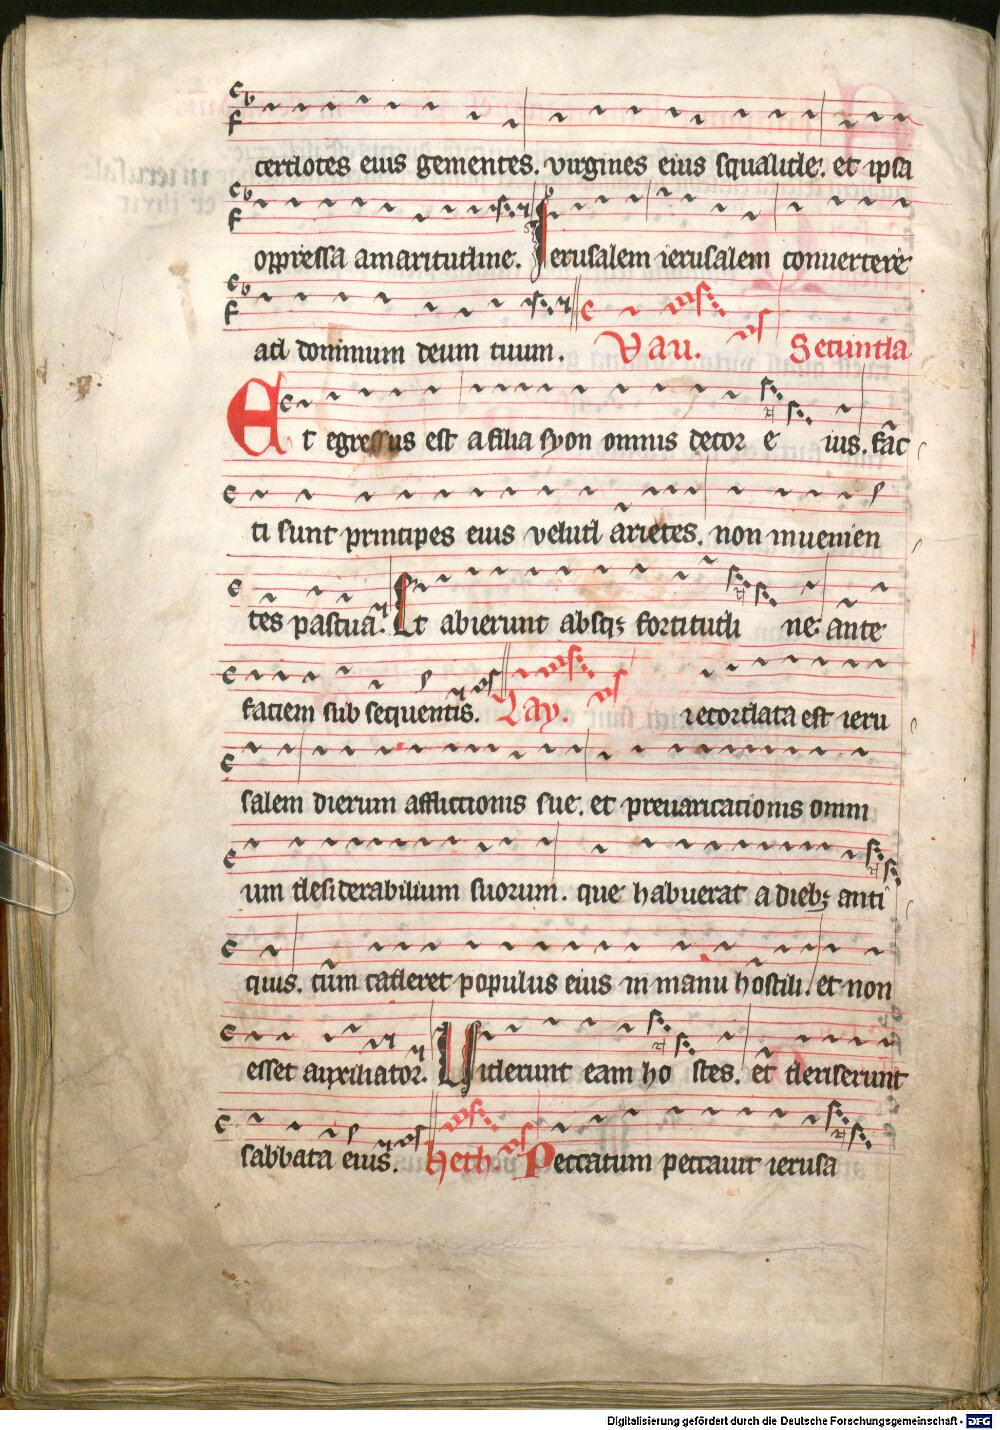 cerdotes eius gementes. virgines eius squalide. et ipsa
oppressa amaritudine. Ierusalem ierusalem conuertere
ad dominum deum tuum. Vau. Secunda
Et egressus est a filia syon omnis decor e ius. fac̄
ti sunt principes eius velud arietes. non inuenien
tes pascua. Et abierunt absqꝫ fortitudi ne ante
faciem subsequentis. Zay. recordata est ieru
salem dierum afflictionis sue. et preuaricationis omni
um desiderabilium suorum. que habuerat a diebꝫ anti
quis. cum caderet populus eius in manu hostili. et non
esset auxiliator. Viderunt eam ho stes. et deriserunt
sabbata eius. heth. Peccatum peccauit ierusa
Digitalisierung gefördert durch die Deutsche Forschungsgemeinschaft - DFG